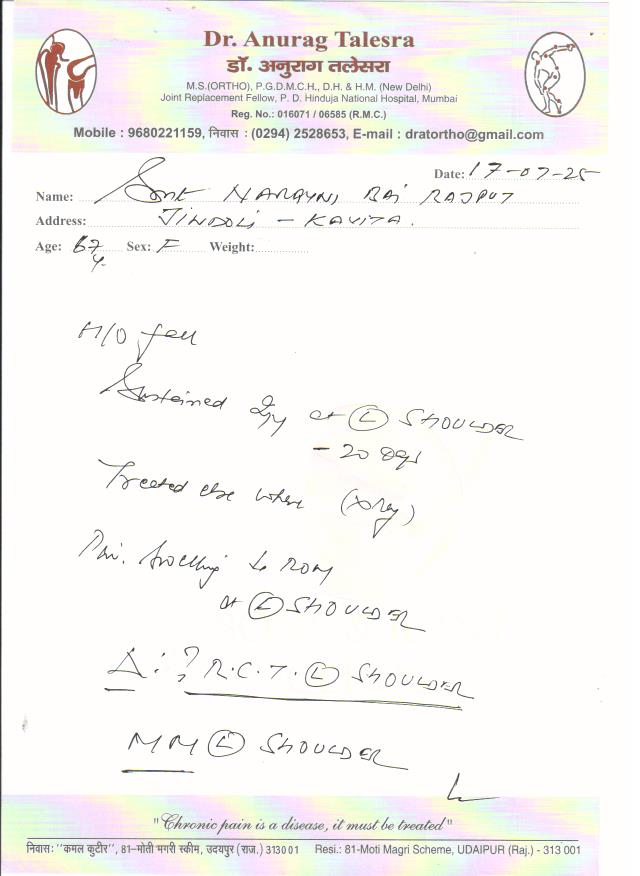 Dr. Anurag Talesra
डॉ. अनुराग तलेसरा
M.S.(ORTHO), P.G.D.M.C.H., D.H. & H.M. (New Delhi)
Joint Replacement Fellow, P. D. Hinduja National Hospital, Mumbai
Reg. No.: 016071 / 06585 (R.M.C.)
Mobile : 9680221159, निवास : (0294) 2528653, E-mail : dratortho@gmail.com
Date: 17-07-25
Name: Smt NARAYNI BAI RAJPUT
Address: JINDOLI - KAVITA.
Age: 67 y. Sex: F Weight:
H/O fall
Sustained Inj at (L) SHOULDER
- 20 Days
Treated else where (Xray)
Pain. Swelling ↓ ROM
at (L) SHOULDER
Δ: ? R.C.T. (L) SHOULDER
(L) SHOULDER
"Chronic pain is a disease, it must be treated"
निवास: "कमल कुटीर", 81-मोती मगरी स्कीम, उदयपुर (राज.) 313001 Resi.: 81-Moti Magri Scheme, UDAIPUR (Raj.) - 313 001